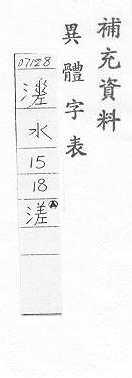 補充資料
異體字表
07128
水
15
18
溠